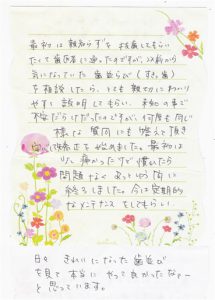 最初は親知らずを抜歯してもらい
たくて歯医者に通ったのですが、以前から
気になっていた歯並び(すきっ歯)
を相談したら、とても親切にわかり
やすく説明してもらい、未知の事で
不安だらけだったのですが、何度も同じ
様な質問にも答えて頂き
安心して矯正を始めました。最初は
少し痛かったけど慣れたら
問題なくあっという間に
終了しました。今は定期的
なメンテナンスをしてもらい、
日々きれいになった歯並び
を見て本当にやって良かったなぁー
と思っています。